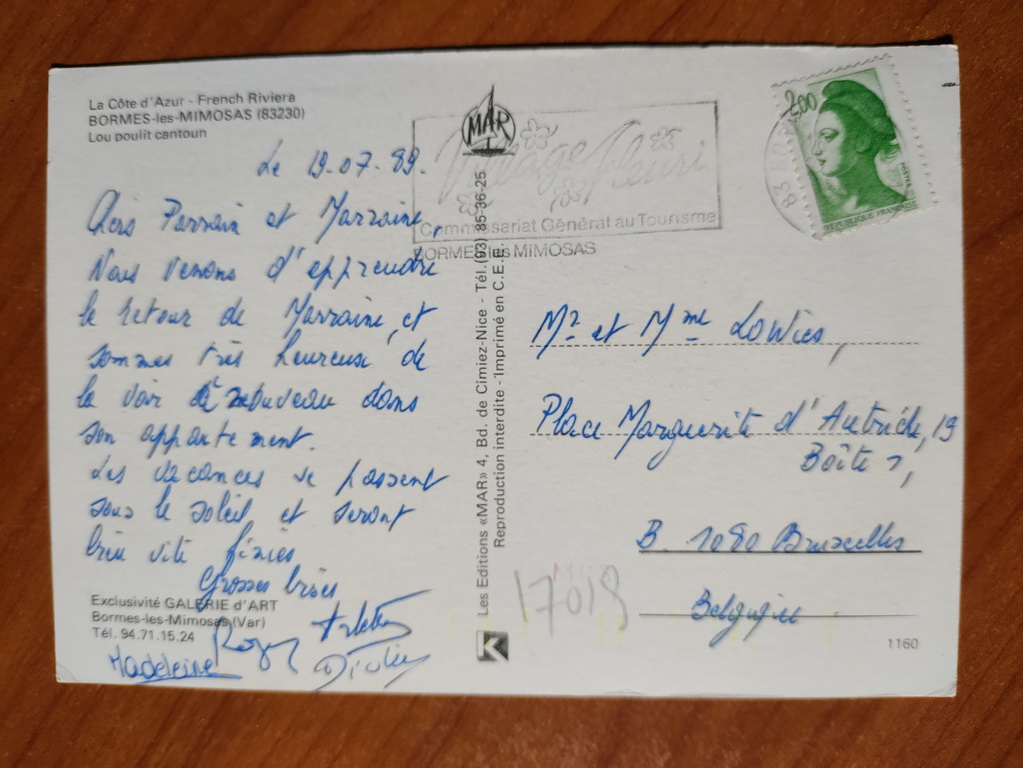 La Côte d'Azur - French Riviera
BORMES-les-MIMOSAS (83230)
Lou poulit cantoun
Le 19.07.89.
Chers Parrain et Marraine,
Nous venons d'apprendre
le retour de Marraine, et
sommes très heureuse de
la voir à nouveau dans
son appartement.
Les vacances se passent
sous le soleil et seront
bien vite finies
Grosses bises
Arlette
Roger
Madeleine
Exclusivité GALERIE d'ART
Bormes-les-Mimosas (Var)
Tél. 94.71.15.24
MAR
Village Fleuri
Commissariat Général au Tourisme
BORMES les MIMOSAS
Les Editions «MAR» 4, Bd. de Cimiez-Nice - Tél. (93) 85-36-25
Reproduction interdite - Imprimé en C.E.E.
K
2,00
POSTES
REPUBLIQUE FRANÇAISE
Mr et Mme Lowies,
Place Marguerite d'Autriche, 19
Boîte 7,
B. 1080 Bruxelles
Belgique
17018
1160